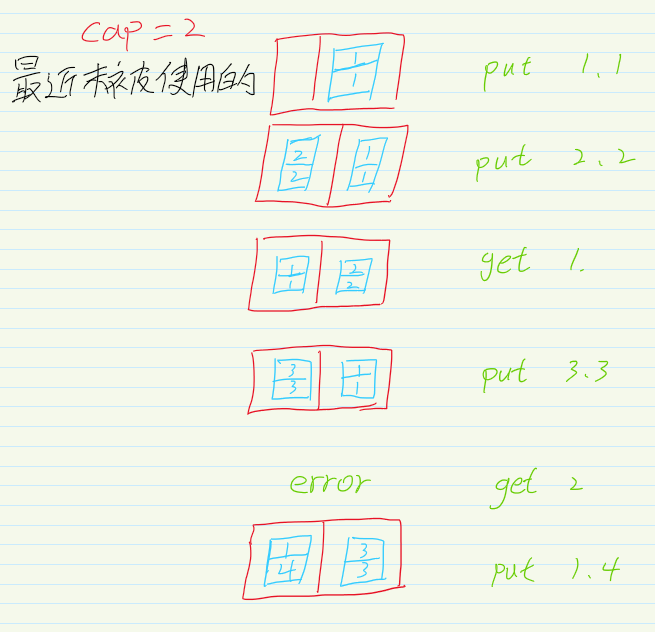 cap = 2
最近被使用的
1
1
put 1.1
2
2
1
1
put 2.2
1
1
2
2
get 1.
3
3
1
1
put 3.3
error get 2
1
4
3
3
put 1.4